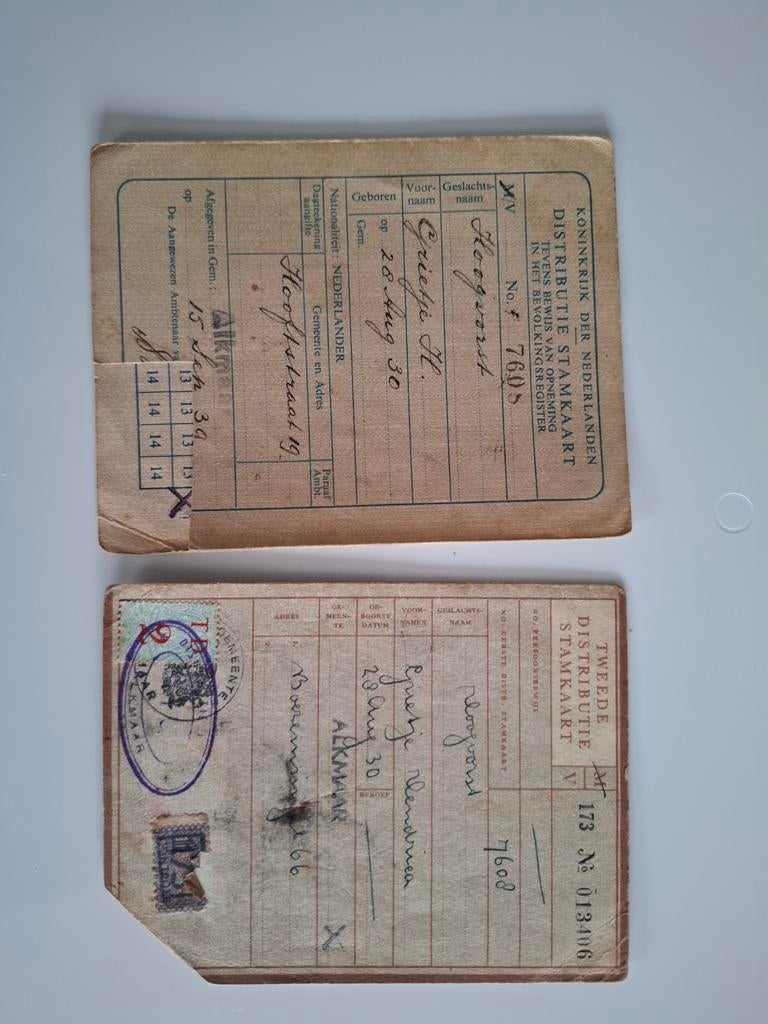 KONINKRIJK DER NEDERLANDEN
DISTRIBUTIE STAMKAART
TEVENS BEWIJS VAN OPNEMING
IN HET BEVOLKINGSREGISTER
M/V No. 7608
Geslachts-
naam Hoogvorst
Voor-
naam Grietje H.
Geboren op 28 Aug 30
Gem.
Nationaliteit NEDERLANDER
Dagteekening
aangifte
Gemeente en Adres
Paraaf
Ambt.
Hooftstraat 19
Afgegeven in Gem.: Alkmaa
op 15 Sep 39
De Aangewezen Ambtenaar v
13 13 13 13
14 14 14 14
TWEEDE
DISTRIBUTIE
STAMKAART
M
V
173 No 013406
NO. PERSOONSBEWIJS
NO. EERSTE DISTR. STAMKAART 7608
GESLACHTS-
NAAM Hoogvorst
VOOR-
NAMEN Grietje Hendrica
GE-
BOORTE
DATUM 28 Aug 30
BEROEP
GE-
MEEN-
TE ALKMAAR X
ADRES
1. 66
2.
GEMEENTE
ALKMAAR